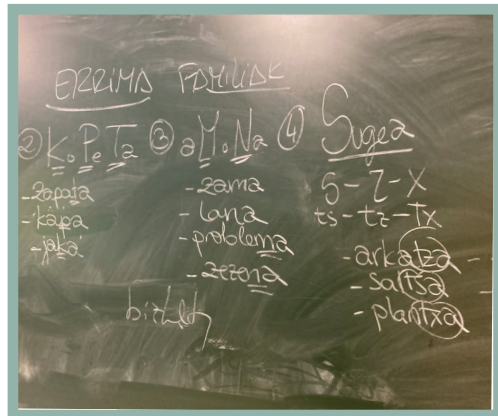 ERRIMA FAMILIAK
② K.o.P.e.Ta
-zapata
-kapa
-jaka
③ aMoNa
-zama
-lana
-problema
-zezena
④ Sugea
S-Z-X
ts-tz-Tx
-arkatza
-saltsa
-plantxa